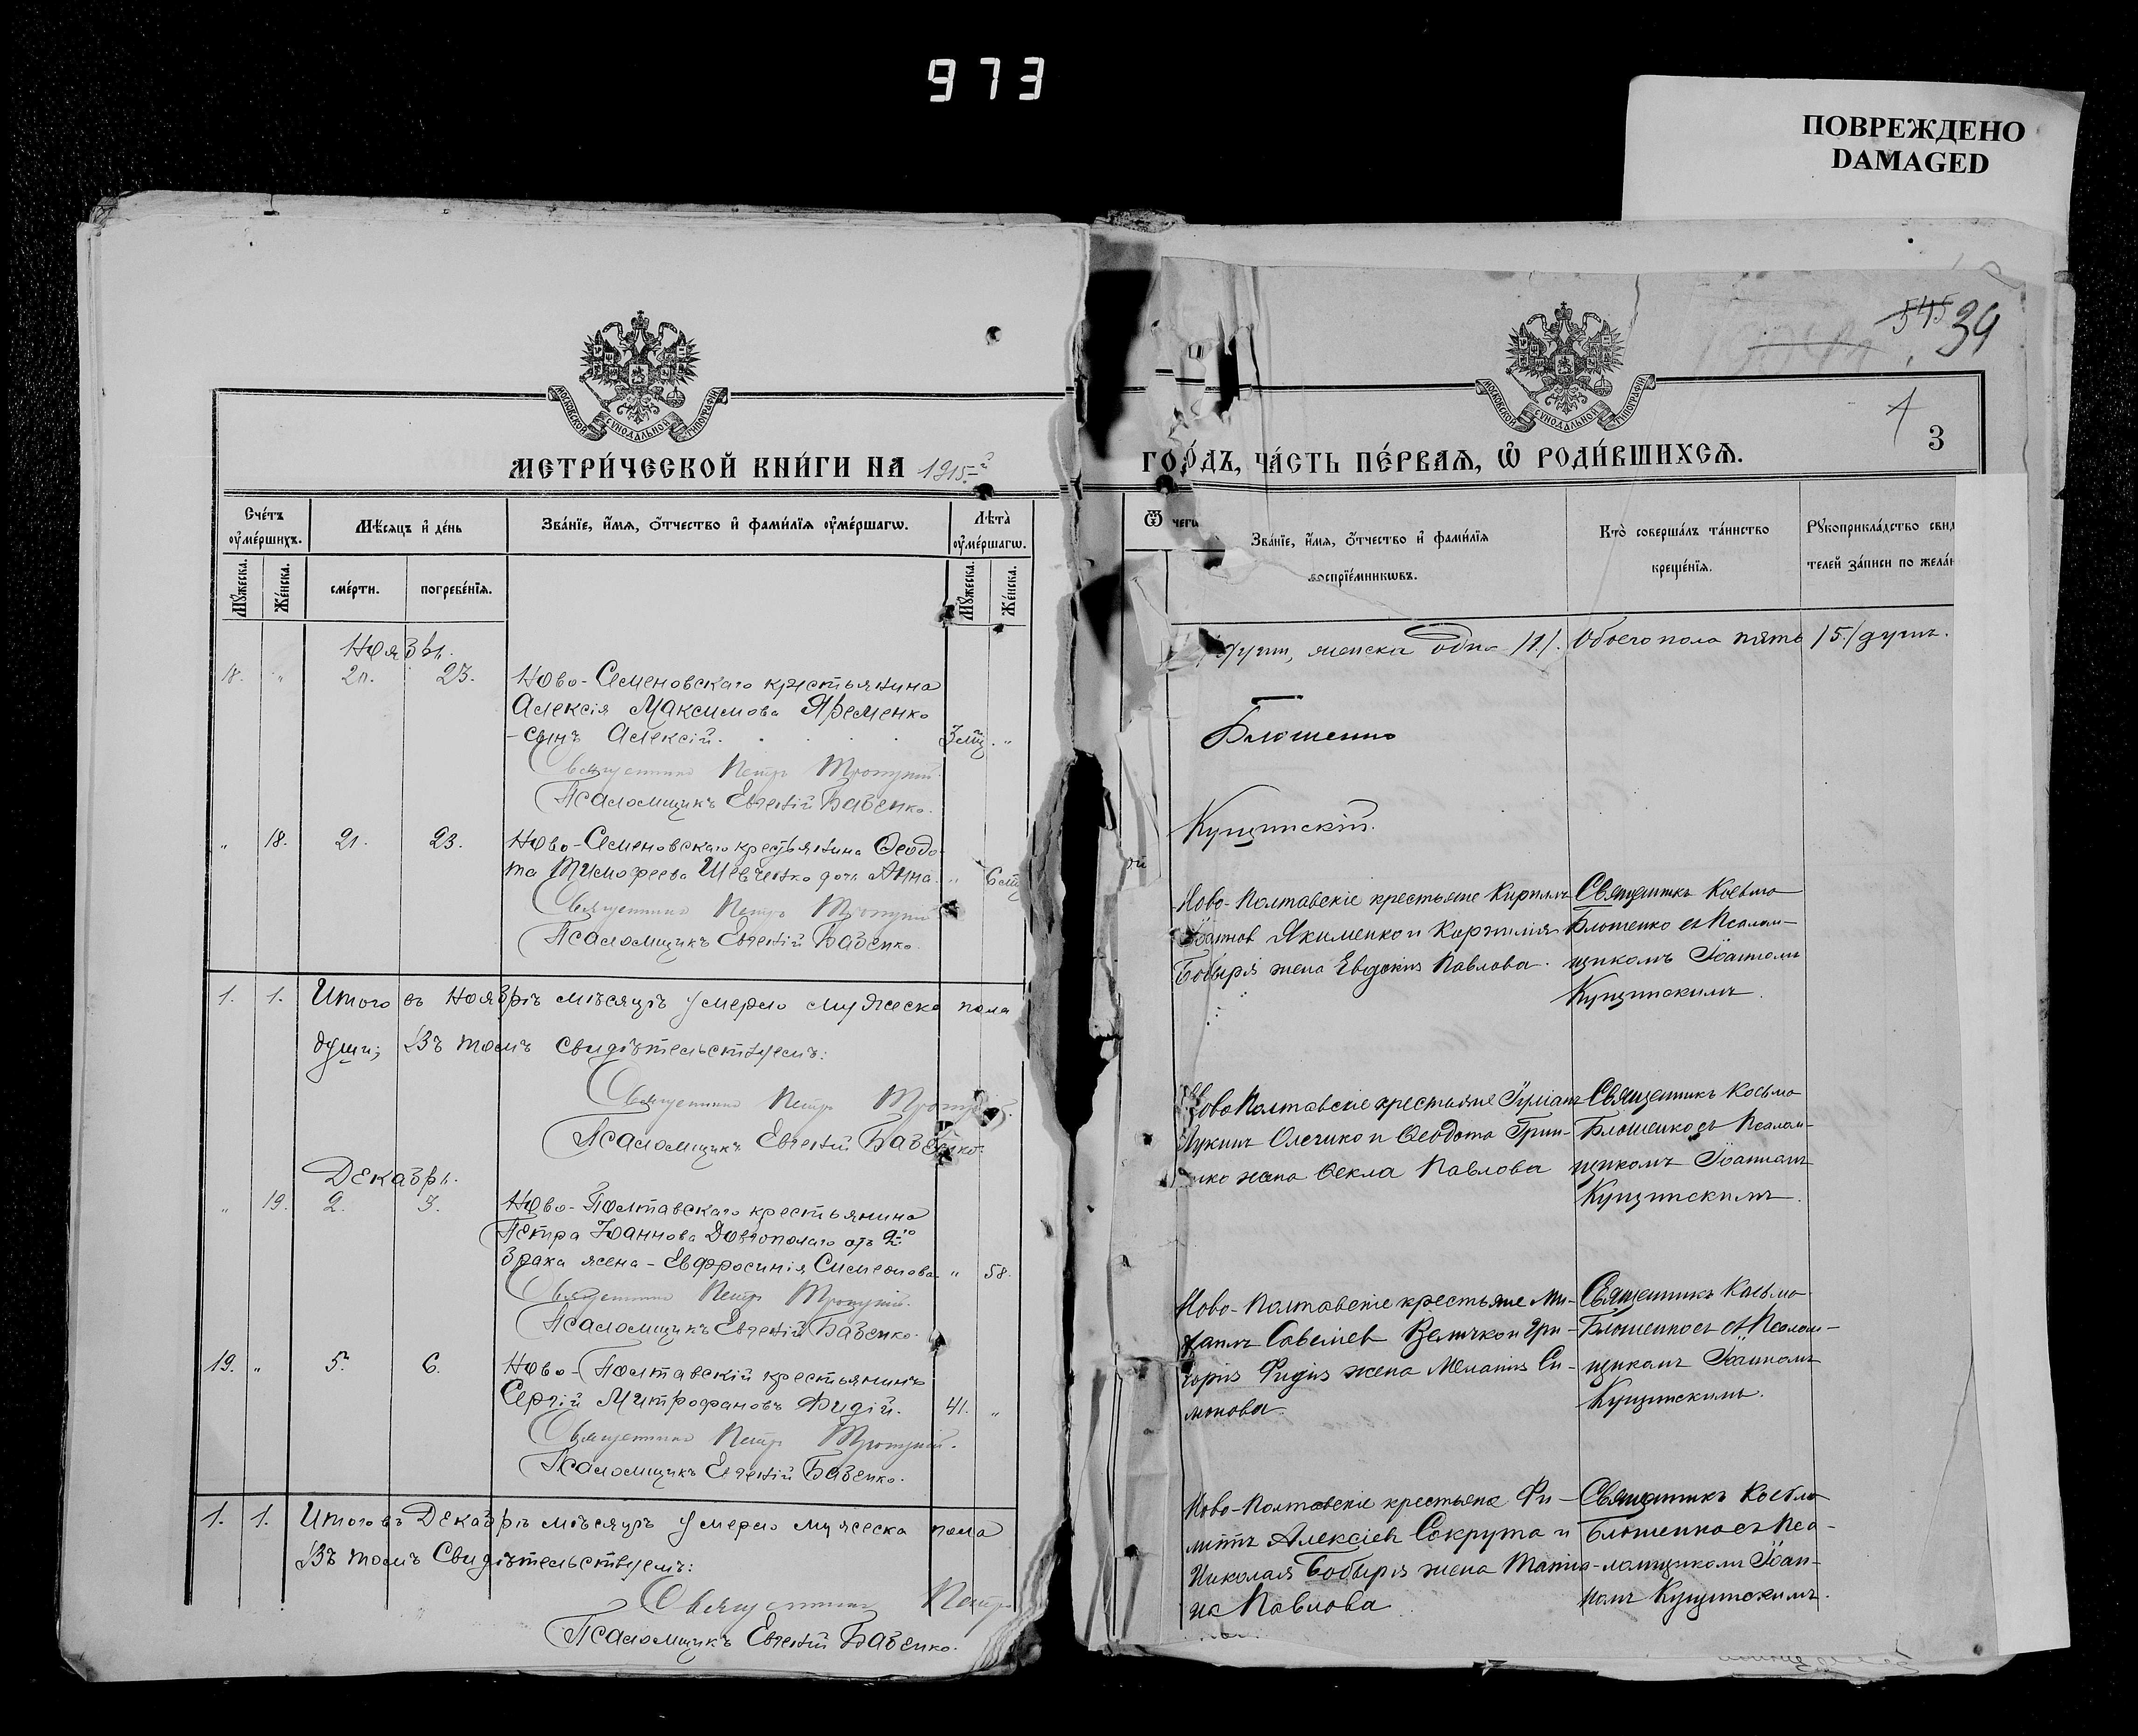 973
ПОВРЕЖДЕНО
DAMAGED
МОСКОВСКОЙ СУНОДАЛЬНОЙ ТИПОГРАФІИ
МЕТРИ́ЧЕСКОЙ КНИ́ГИ НА 1915
Сче́тъ оу҆ме́ршихъ.
Мѣ́сяцъ и҆ де́нь
Зва́нїе, и҆́мѧ, ѻ҆́тчество и҆ фами́лїѧ оу҆ме́ршагѡ.
Лѣ́та оу҆ме́ршагѡ.
Мꙋ́жеска.
Же́нска.
сме́рти.
погребе́нїѧ.
Мꙋ́жеска.
Же́нска.
Ноябрь.
18. " 21. 23. Ново-Семеновскаго крестьянина
Алексія Максимова Яременко
- сынъ Алексій. 3 мѣс. "
Священникъ Петръ Троицкій.
Псаломщикъ Евгеній Бабенко.
" 18. 21. 23. Ново-Семеновскаго крестьянина Ѳеодо-
та Тимофеева Шевченко дочь Анна. " 6 мѣс
Священникъ Петръ Троицкій
Псаломщикъ Евгеній Бабенко.
1. 1. Итого въ Ноябрѣ мѣсяцѣ умерло мужеска пола
души; Въ томъ свидѣтельствуемъ:
Священникъ Петръ Троицкій.
Псаломщикъ Евгеній Бабенко.
Декабрь.
" 19. 2. 3. Ново-Полтавскаго крестьянина
Петра Іоаннова Довгополаго отъ 2-го
брака жена - Евфросинія Симеонова " 58.
Священникъ Петръ Троицкій.
Псаломщикъ Евгеній Бабенко.
19. " 5. 6. Ново-Полтавскій крестьянинъ
Сергій Митрофановъ Фидій. 41. "
Священникъ Петръ Троицкій.
Псаломщикъ Евгеній Бабенко.
1. 1. Итого въ Декабрѣ мѣсяцѣ умерло мужеска пола
Въ томъ Свидѣтельствуемъ:
Священникъ Петръ
Псаломщикъ Евгеній Бабенко.
545 39
МОСКОВСКОЙ СУНОДАЛЬНОЙ ТИПОГРАФІИ
3
ГО́ДЪ, ЧА́СТЬ ПЕ́РВАѦ, Ѡ҆ РОДИ́ВШИХСѦ.
Зва́нїе, и҆́мѧ, ѻ҆́тчество и҆ фами́лїѧ
воспрїе́мникѡвъ.
Кто̀ соверша́лъ та́инство
креще́нїѧ.
Рꙋкоприкла́дство свид
телей за́писи по жела́н
душъ, женска одна /1/. Обоего пола пять /5/ душъ.
Блошенко
Кущинскій.
Ново-Полтавскіе крестьяне Кириллъ
Іоанновъ Якименко и Корнилія
Бобыря жена Евдокія Павлова.
Священникъ Косьма
Блошенко съ Псалом-
щикомъ Іоанномъ
Кущинскимъ.
Ново Полтавскіе крестьяне
Лукинъ и Ѳеодота Грин-
жена Ѳекла Павлова
Священникъ Косьма
Блошенко съ Псалом-
щикомъ Іоанномъ
Кущинскимъ.
Ново-Полтавскіе крестьяне Ми-
хаилъ Савеліевъ Величко и Гри-
горія Фидія жена Меланія Си-
монова.
Священникъ Косьма
Блошенко съ Псалом-
щикомъ Іоанномъ
Кущинскимъ.
Ново-Полтавскіе крестьяне Фи-
липпъ Алексіевъ Сокрута и
Николая Бобыря жена Татіа-
на Павлова
Священникъ Косьма
Блошенко съ Пса-
ломщикомъ Іоан-
номъ Кущинскимъ.